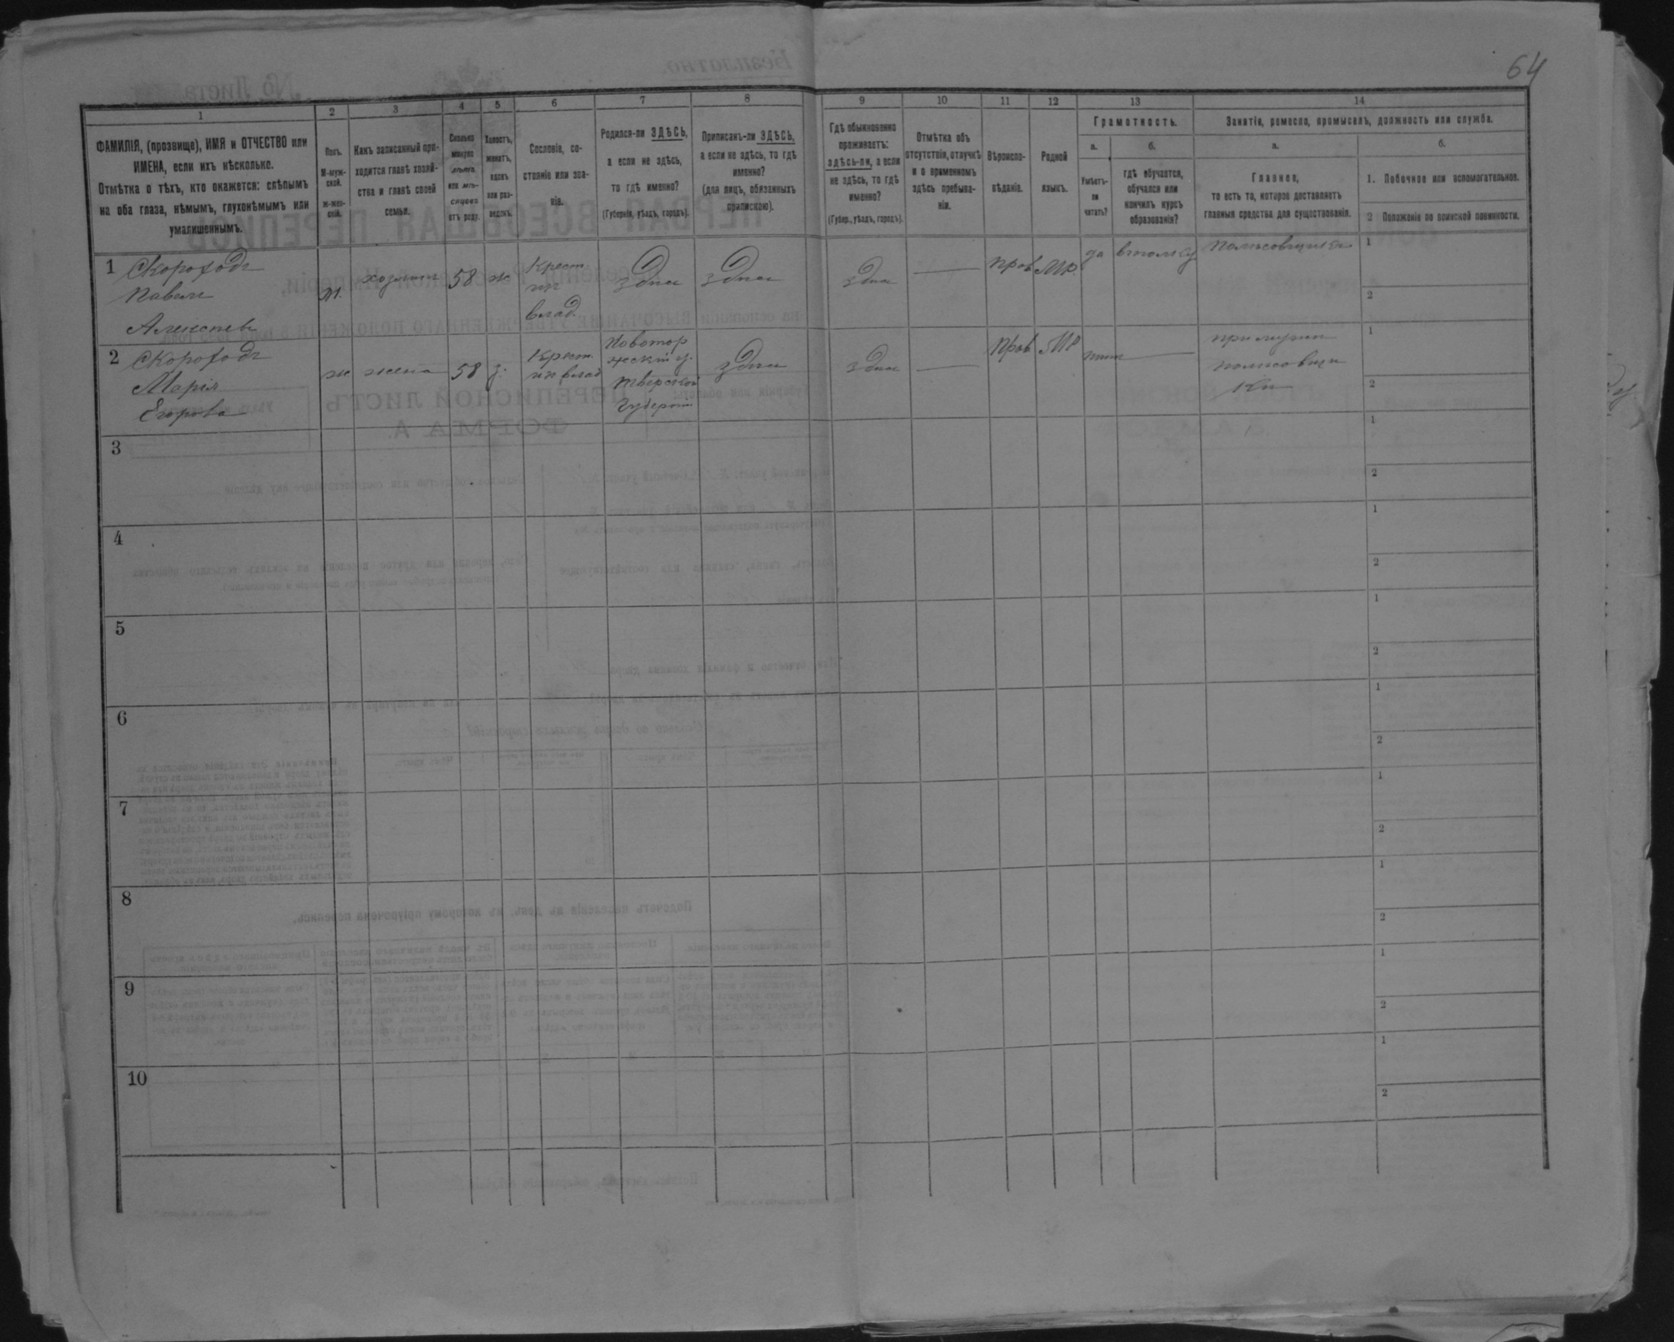 64
1
2
3
4
5
6
7
8
9
10
11
12
13
14
ФАМИЛІЯ, (прозвище), ИМЯ и ОТЧЕСТВО или
ИМЕНА, если ихъ нѣсколько.
Отмѣтка о тѣхъ, кто окажется: слѣпымъ
на оба глаза, нѣмымъ, глухонѣмымъ или
умалишеннымъ.
Полъ.
М-муж-
ской.
ж-жен-
скій.
Какъ записанный при-
ходится главѣ хозяй-
ства и главѣ своей
семьи.
Сколько
минуло
лѣтъ
или мѣ-
сяцевъ
отъ роду.
Холостъ,
женатъ,
вдовъ
или раз-
веденъ.
Сословіе, со-
стояніе или зва-
ніе.
Родился-ли ЗДѢСЬ,
а если не здѣсь,
то гдѣ именно?
(Губернія, уѣздъ, городъ).
Приписанъ-ли ЗДѢСЬ,
а если не здѣсь, то гдѣ
именно?
(для лицъ, обязанныхъ
припискою).
Гдѣ обыкновенно
проживаетъ:
здѣсь-ли, а если
не здѣсь, то гдѣ
именно?
(Губер., уѣздъ, городъ).
Отмѣтка объ
отсутствіи, отлучкѣ
и о временномъ
здѣсь пребыва-
ніи.
Вѣроиспо-
вѣданіе.
Родной
языкъ.
Грамотность.
а.
Умѣетъ-
ли
читать?
б.
гдѣ обучается,
обучался или
кончилъ курсъ
образованія?
Занятіе, ремесло, промыселъ, должность или служба.
а.
Главное,
то есть то, которое доставляетъ
главныя средства для существованія.
б.
1. Побочное или вспомогательное.
2 Положеніе по воинской повинности.
1 Скороходъ
Павелъ
Алексѣевъ
м.
хозяинъ
58
ж
Крест.
из
влад
здѣсь
здѣсь
здѣсь
прав
МР
да
1
2
2 Скороходъ
Марія
Егорова
ж
жена
58
з.
Крест
из влад
Новотор
жскій у.
Тверской
губерніи
здѣсь
здѣсь
прав
МР
при мужѣ
1
2
3
1
2
4
1
2
5
1
2
6
1
2
7
1
2
8
1
2
9
1
2
10
1
2